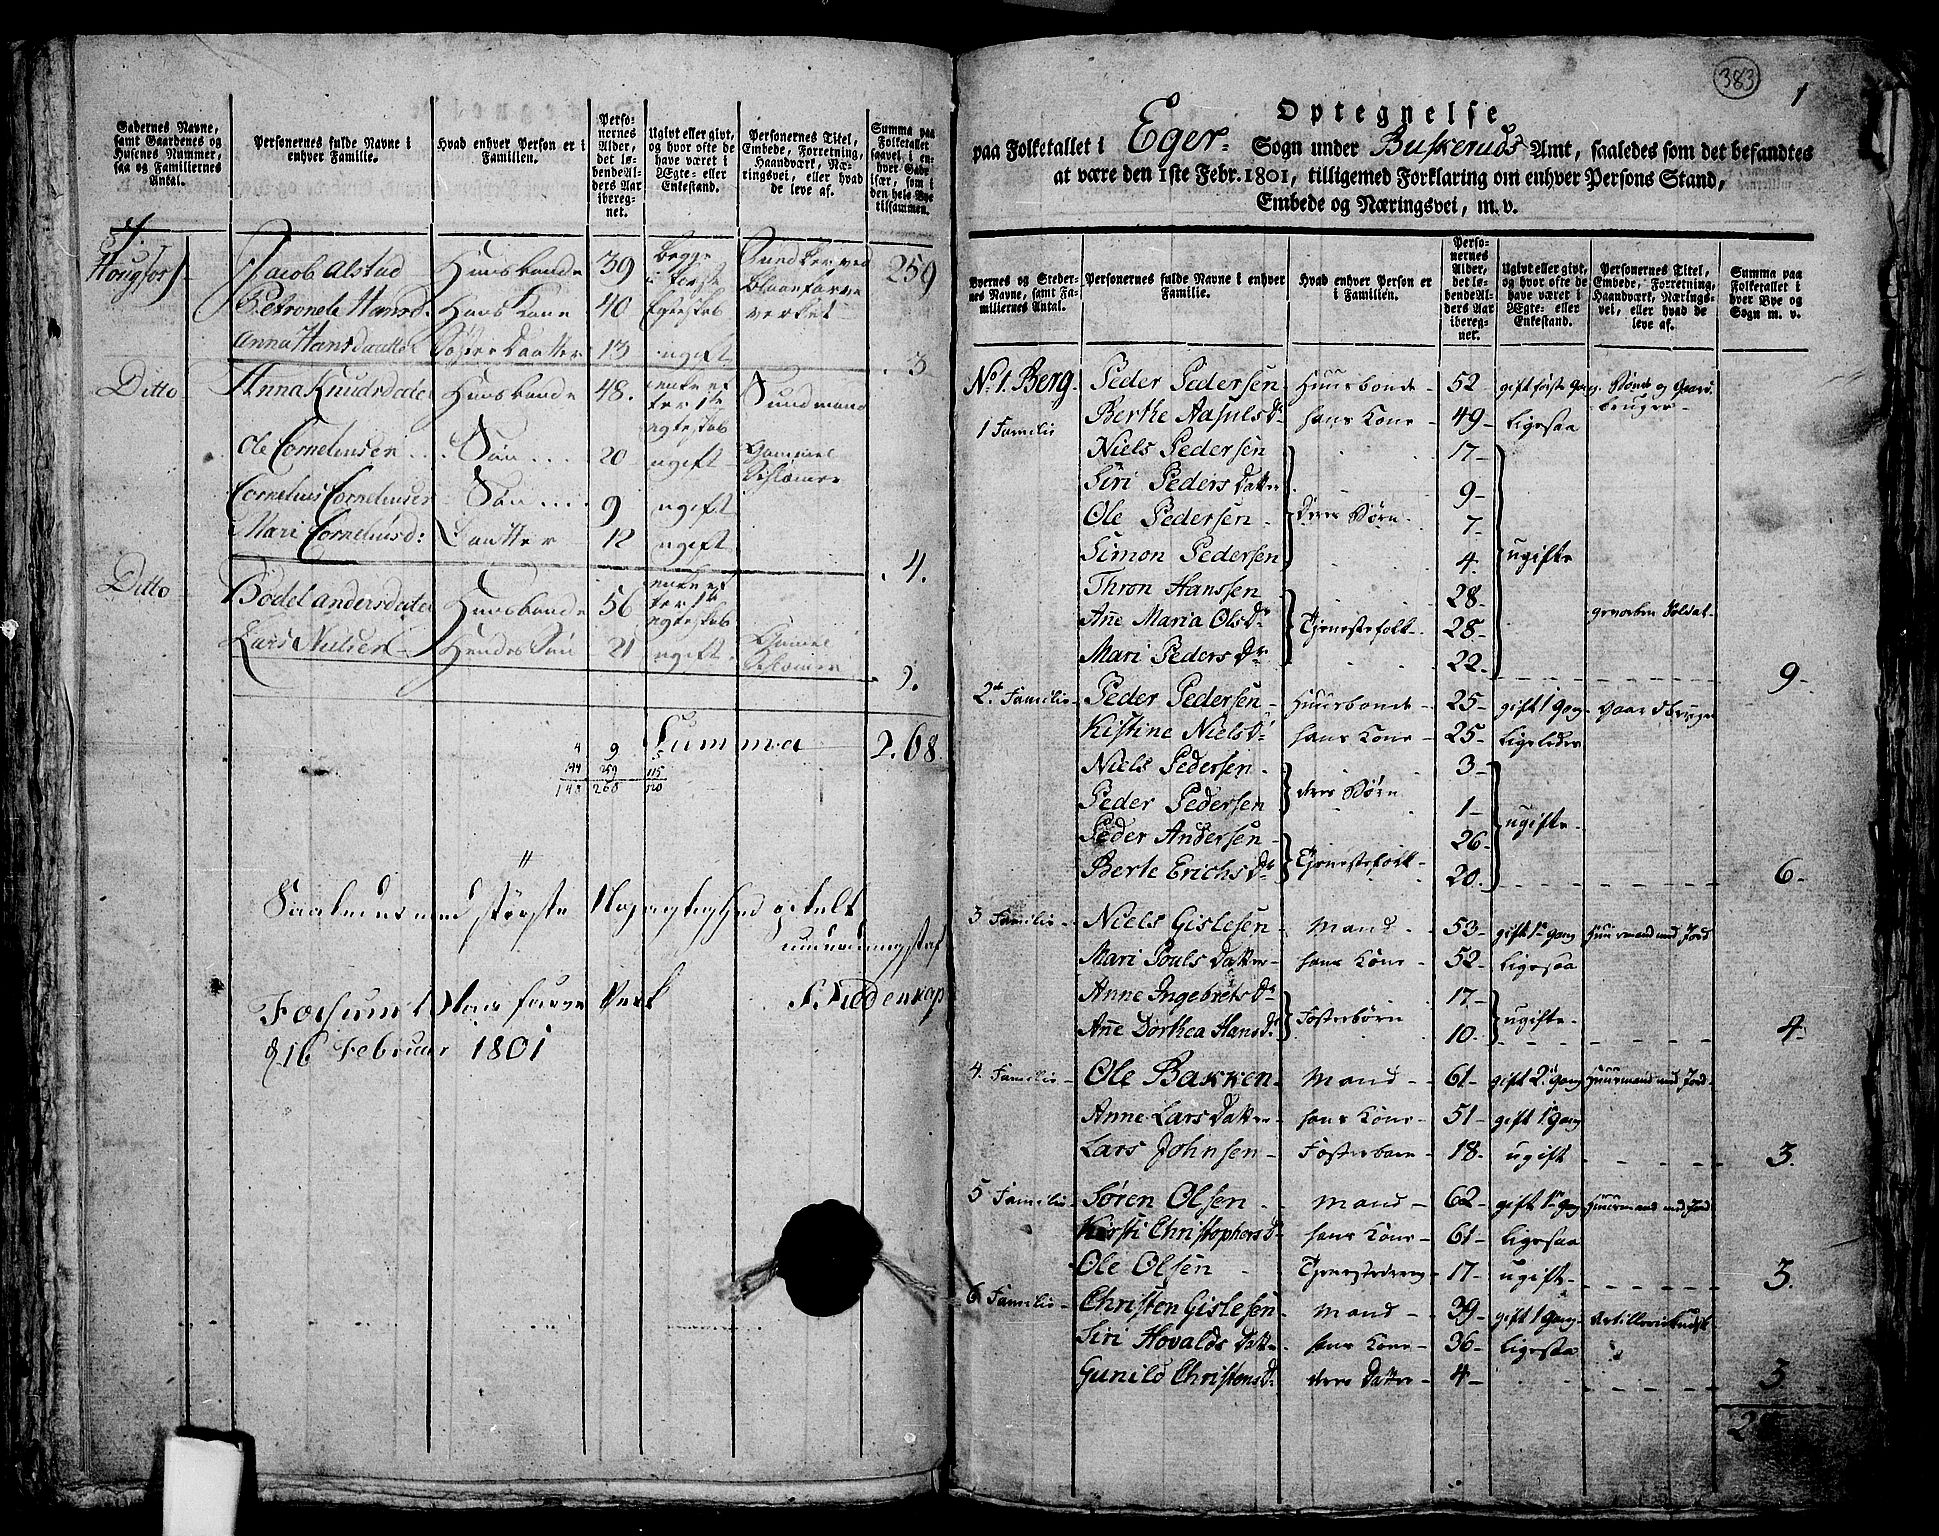 Gadernes Navne, samt Gaardenes og Husenes Nummer, saa og Familiernes Antal.
Personernes fulde Navne i enhver Familie.
Hvad enhver Person er i Familien.
Personernes Alder, det løbende Alders Aar iberegnet.
Ugivt eller givt, og hvor ofte de have været i Ægte- eller Enkestand.
Personernes Titel, Embede, Forretning, Haandværk, Næringsvei, eller hvad de leve af.
Summa paa Folketallet saavel i enhver Gade især, som i den hele Bye tilsammen.
Hougfos Jacob Alstad Huusbonde 39 begge i første Egteskab 259
Petronele Hansd. Hans Kone 40
Anna Hansdaatter 13 ugift 3
Ditto Anna Knudsdater Huusbonde 48. enke efter 1te egteskab
Ole Cornelinsen Søn 20 ugift Gammel
Cornelius Cornelinsen Søn 9 ugift
Mari Cornelinsd: Daatter 12 ugift 4.
Ditto Bodel andersdater Huusbonde 56 enke efter 1te egteskab
Lars Nielsen Hendes Søn 21 ugift 2.
4 9 5 Summa 268.
144 259 115
148 268 120
Saaledes med største Nøjagtighed
Fossum Blaae farve Verk
d. 16 Februar 1801
383
1
Optegnelse
paa Folketallet i Eger Sogn under Buskeruds Amt, saaledes som det befandtes
at være den 1ste Febr. 1801, tilligemed Forklaring om enhver Persons Stand,
Embede og Næringsvei, m. v.
Byernes og Stedernes Navne, samt Familiernes Antal.
Personernes fulde Navne i enhver Familie.
Hvad enhver Person er i Familien.
Personernes Alder, det løbende Alders Aar iberegnet.
Ugivt eller givt, og hvor ofte de have været i Ægte- eller Enkestand.
Personernes Titel, Embede, Forretning, Haandværk, Næringsvei, eller hvad de leve af.
Summa paa Folketallet i hver Bye og Sogn m. v.
No 1. Berg Peder Pedersen Huusbonde 52 gift første Gang Bonde og Gaardbruger
1 Familie Berthe Aasulsdr hans Kone 49 Ligesaa
Niels Pedersen 17
Siri Peders Datter 9
Ole Pedersen deres Børn 7
Simon Pedersen 4 ugifte
Thron Hanssen 28 gevorben Soldat
Ane Maria Olsdr Tjenestefolk 28
Mari Peders Dr 22 9
2de Familie Peder Pedersen Huusbonde 25 gift 1 Gang Gaardbruger
Kistine Nielsdr hans Kone 25 Ligeledes
Niels Pedersen deres Børn 3
Peder Pedersen 1 ugifte
Peder Andersen Tjenestefolk 26
Berte Erichs Dr 20 6
3 Familie Niels Gislesen Mand 53 gift 1 Gang Huusmand med Jord
Mari Pouls Datter hans Kone 52 Ligesaa
Anne Ingebrets Dr Fosterbørn 17 ugifte
Ane Dorthea Hans Dr 10 4
4. Familie Ole Bakken Mand 61 gift 2 Gang Huusmand med Jord
Anne Lars Datter hans Kone 51 gift 1 Gang
Lars Johnsen Fosterbarn 18 ugift 3.
5 Familie Søren Olsen Mand 62 gift 1 Gang Huusmand med Jord
Kirsti Christophers Dr hans Kone 61 Ligesaa
Ole Olsen Tjenestedreng 17 ugift 3.
6. Familie Christen Gislesen Mand 39 gift 1 Gang Artillerie
Siri Hovalds Datter hans Kone 36 Ligesaa
Gunild Christens Dr deres Datter 4 3
28